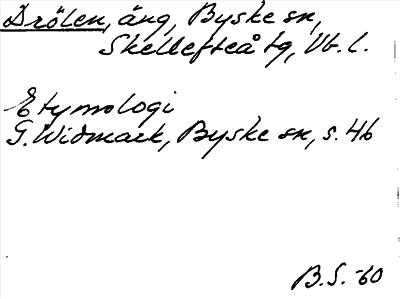 Drölen, äng, Byske sn,
Skellefteå tg, Vb. l.
Etymologi
G. Widmark, Byske sn, s. 46
B.S. -60